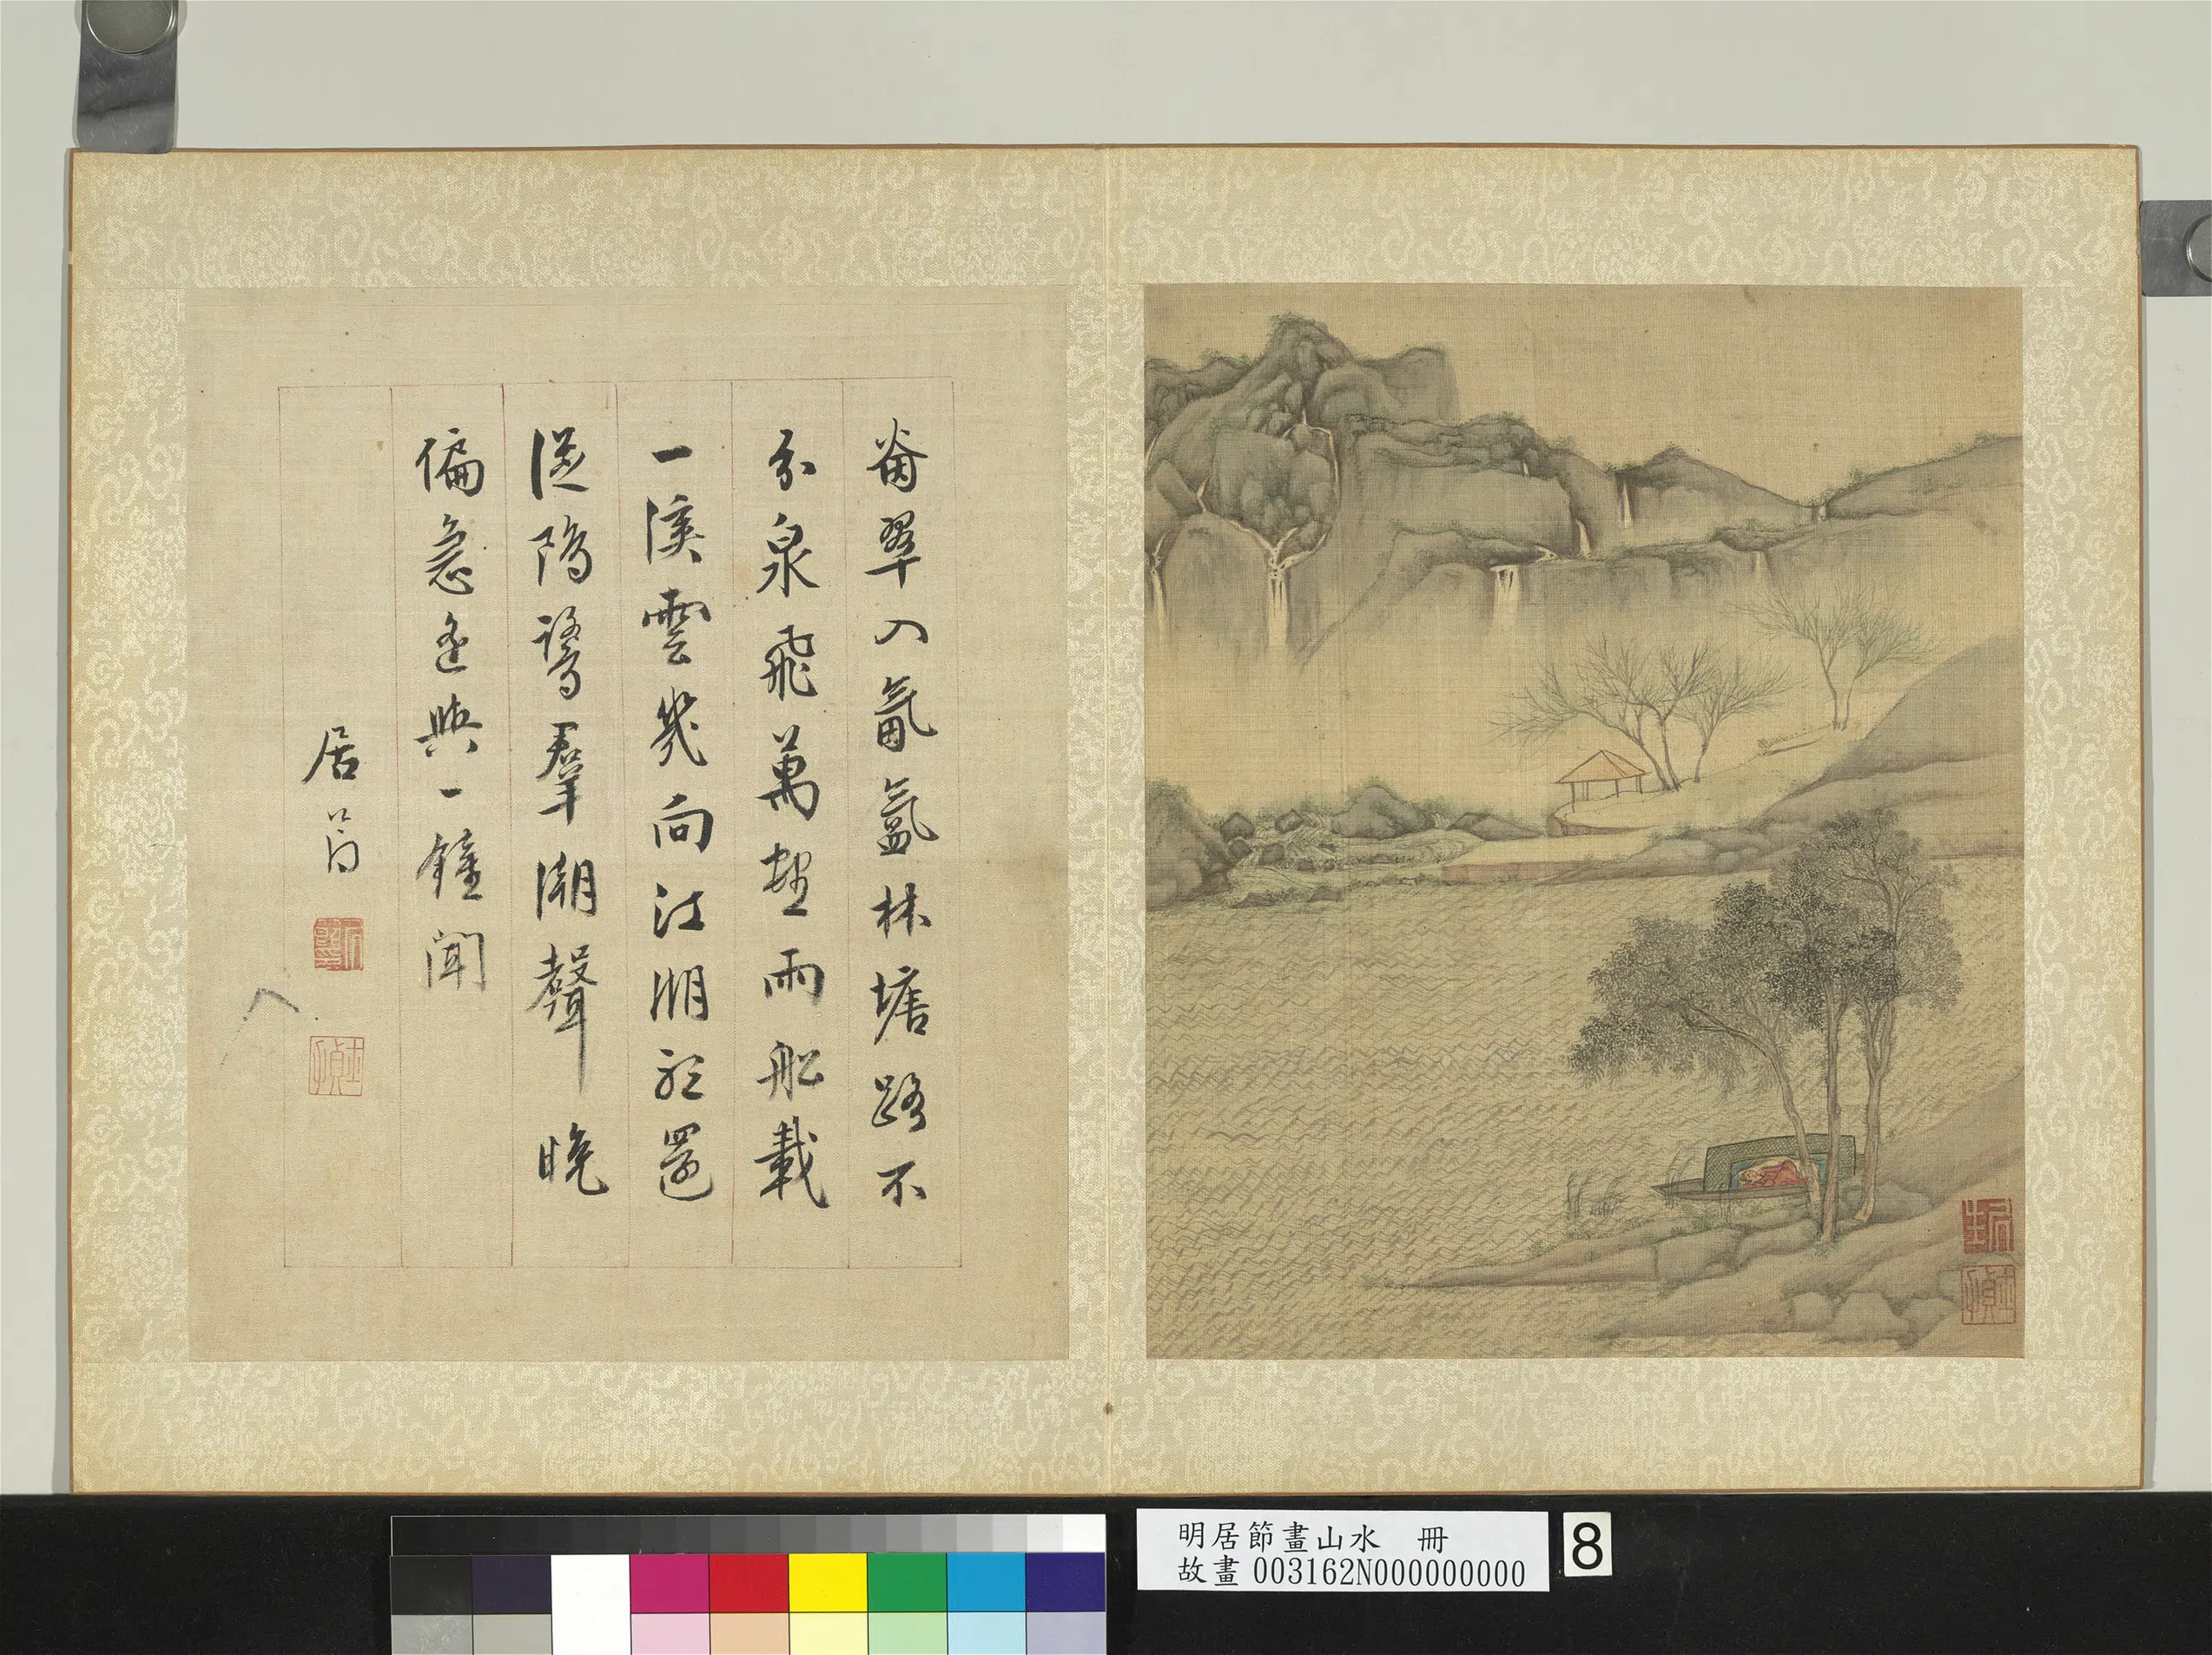 嵐翠入氤氳林塘路不
分泉飛萬壑雨船載
一溪雲幾向江湖還
從鷗鷺羣潮聲晚
偏急遙與一鐘聞
居節
八
明居節畫山水 冊
故畫 003162N000000000
8